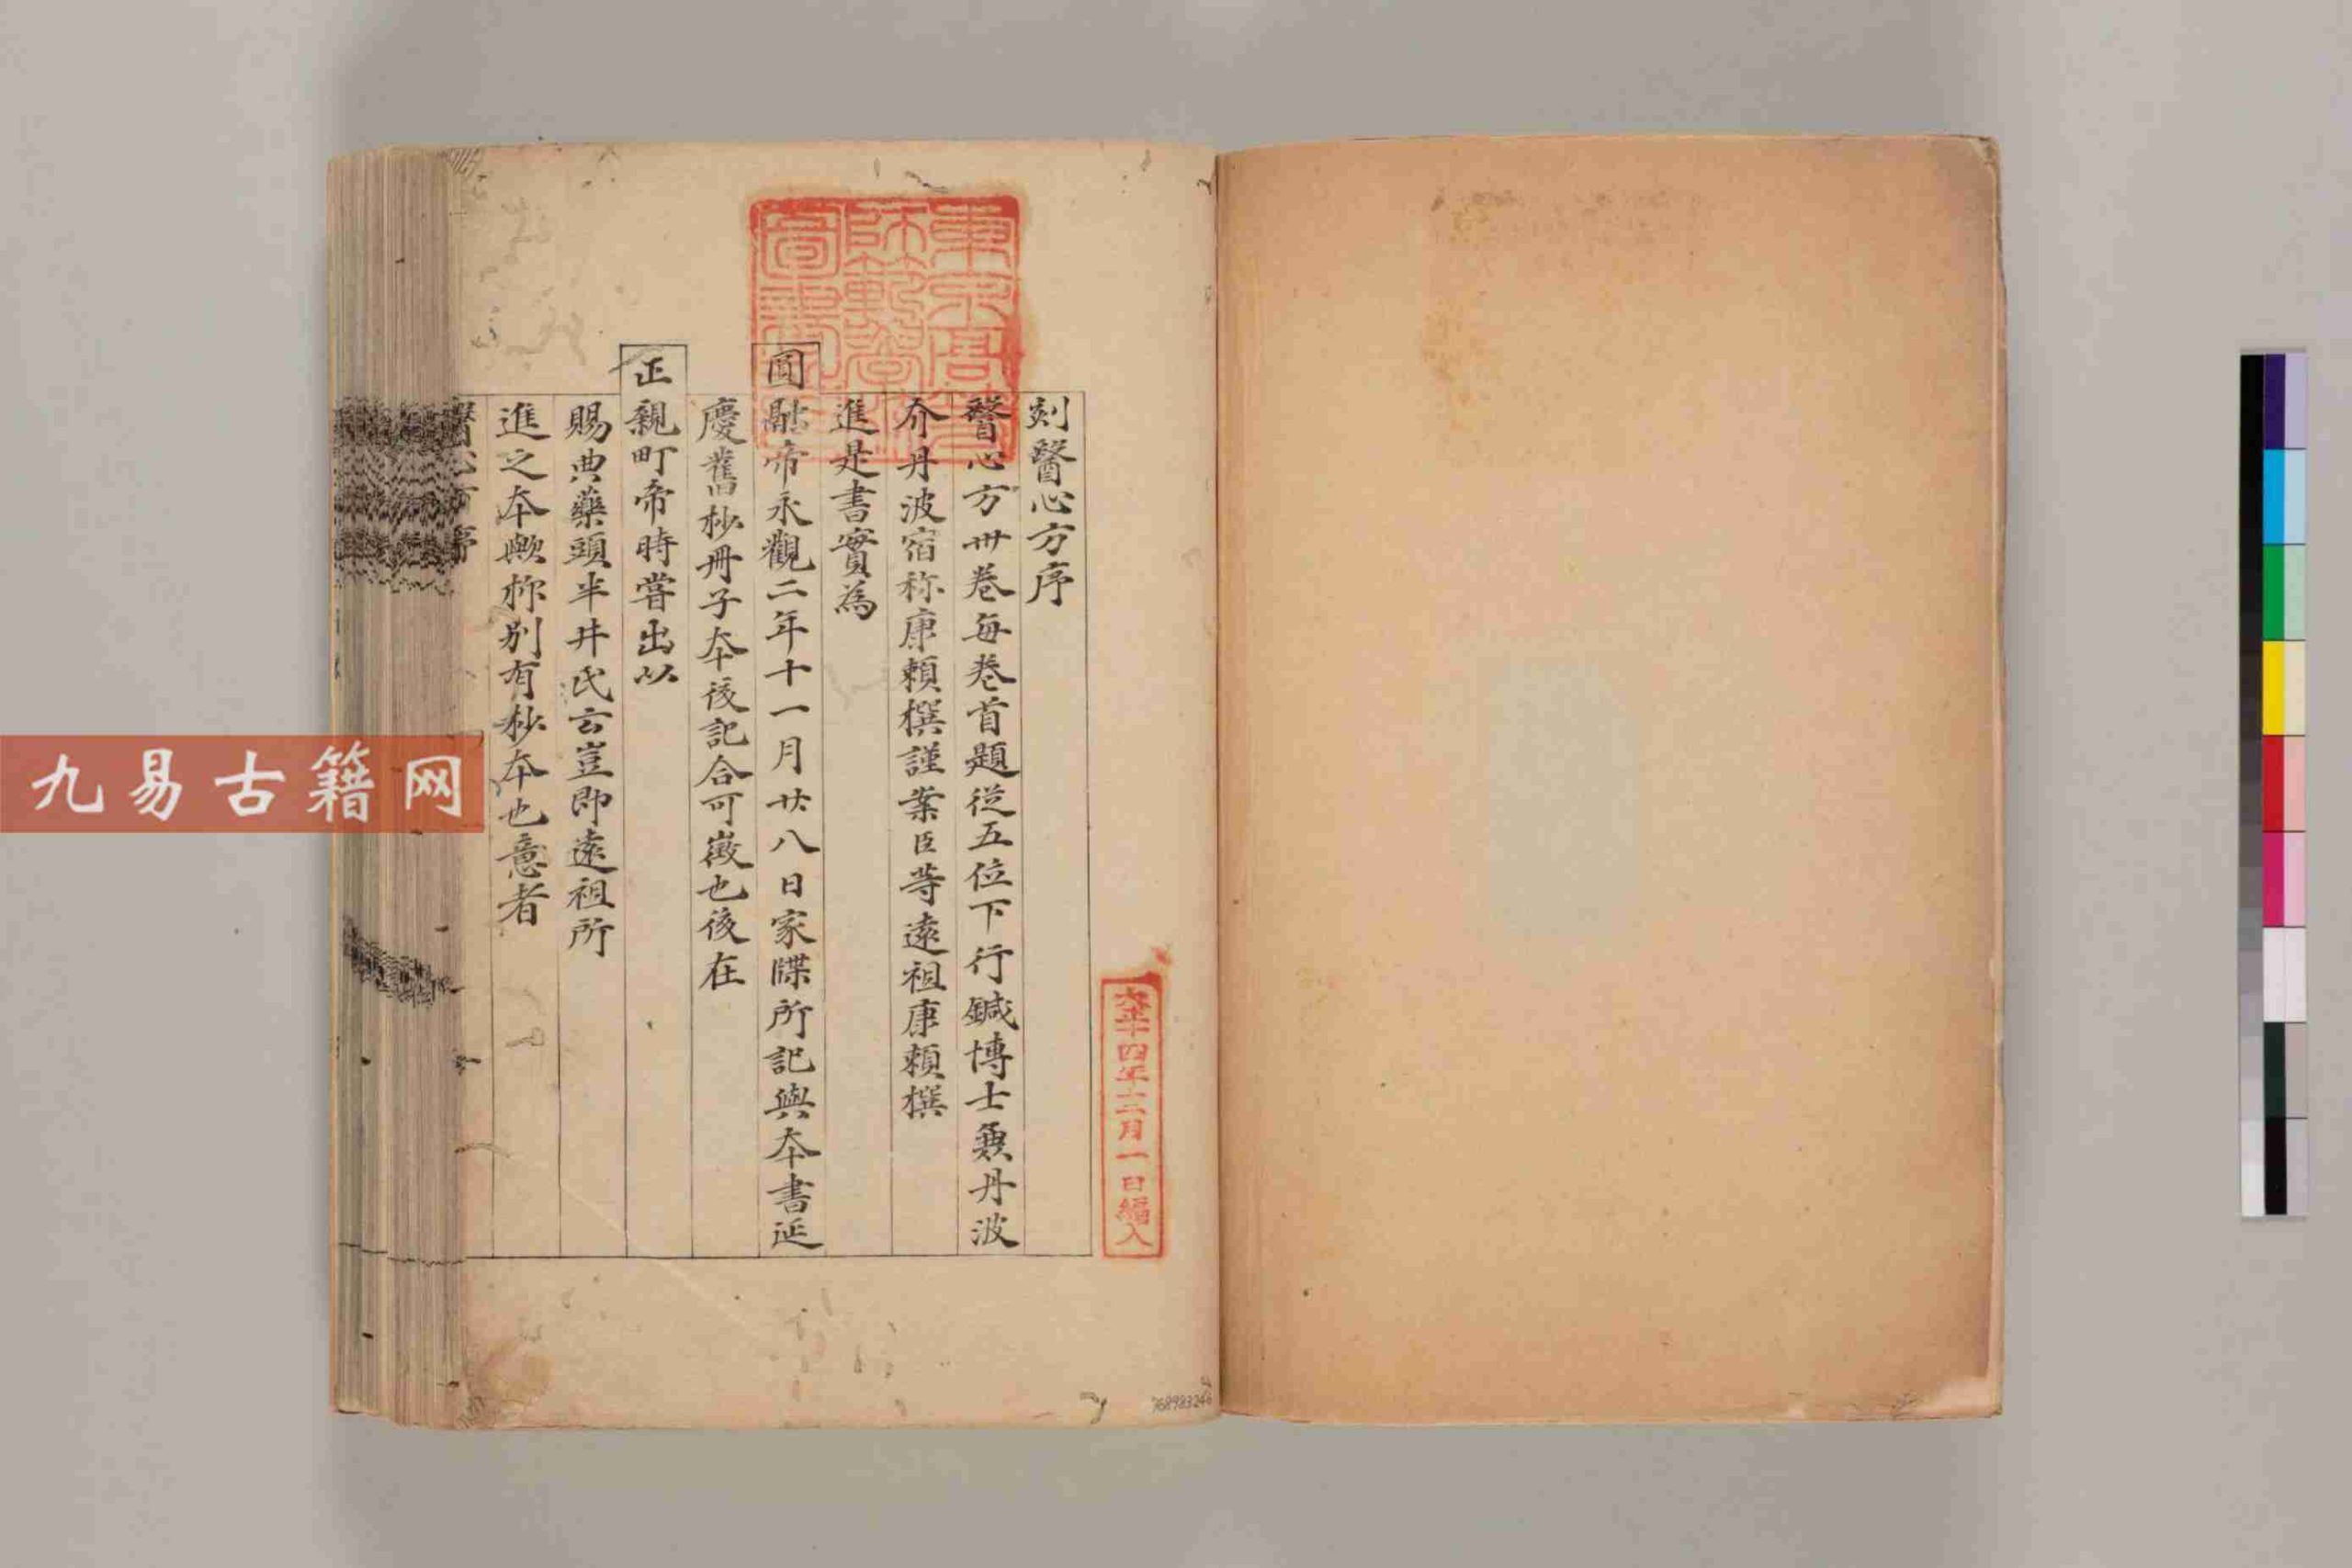 刻醫心方序
醫心方卅卷每卷首題從五位下行鍼博士兼丹波
介丹波宿祢康頼撰謹案臣等遠祖康頼撰
進是書實為
圓融帝永觀二年十一月廿八日家牒所記與本書延
慶舊杪冊子本後記合可徵也後在
正親町帝時嘗出以
賜典藥頭半井氏云豈即遠祖所
進之本歟抑別有杪本也意者
醫心方序
東京高
師範學
圖書
大正十四年十二月一日編入
九易古籍网